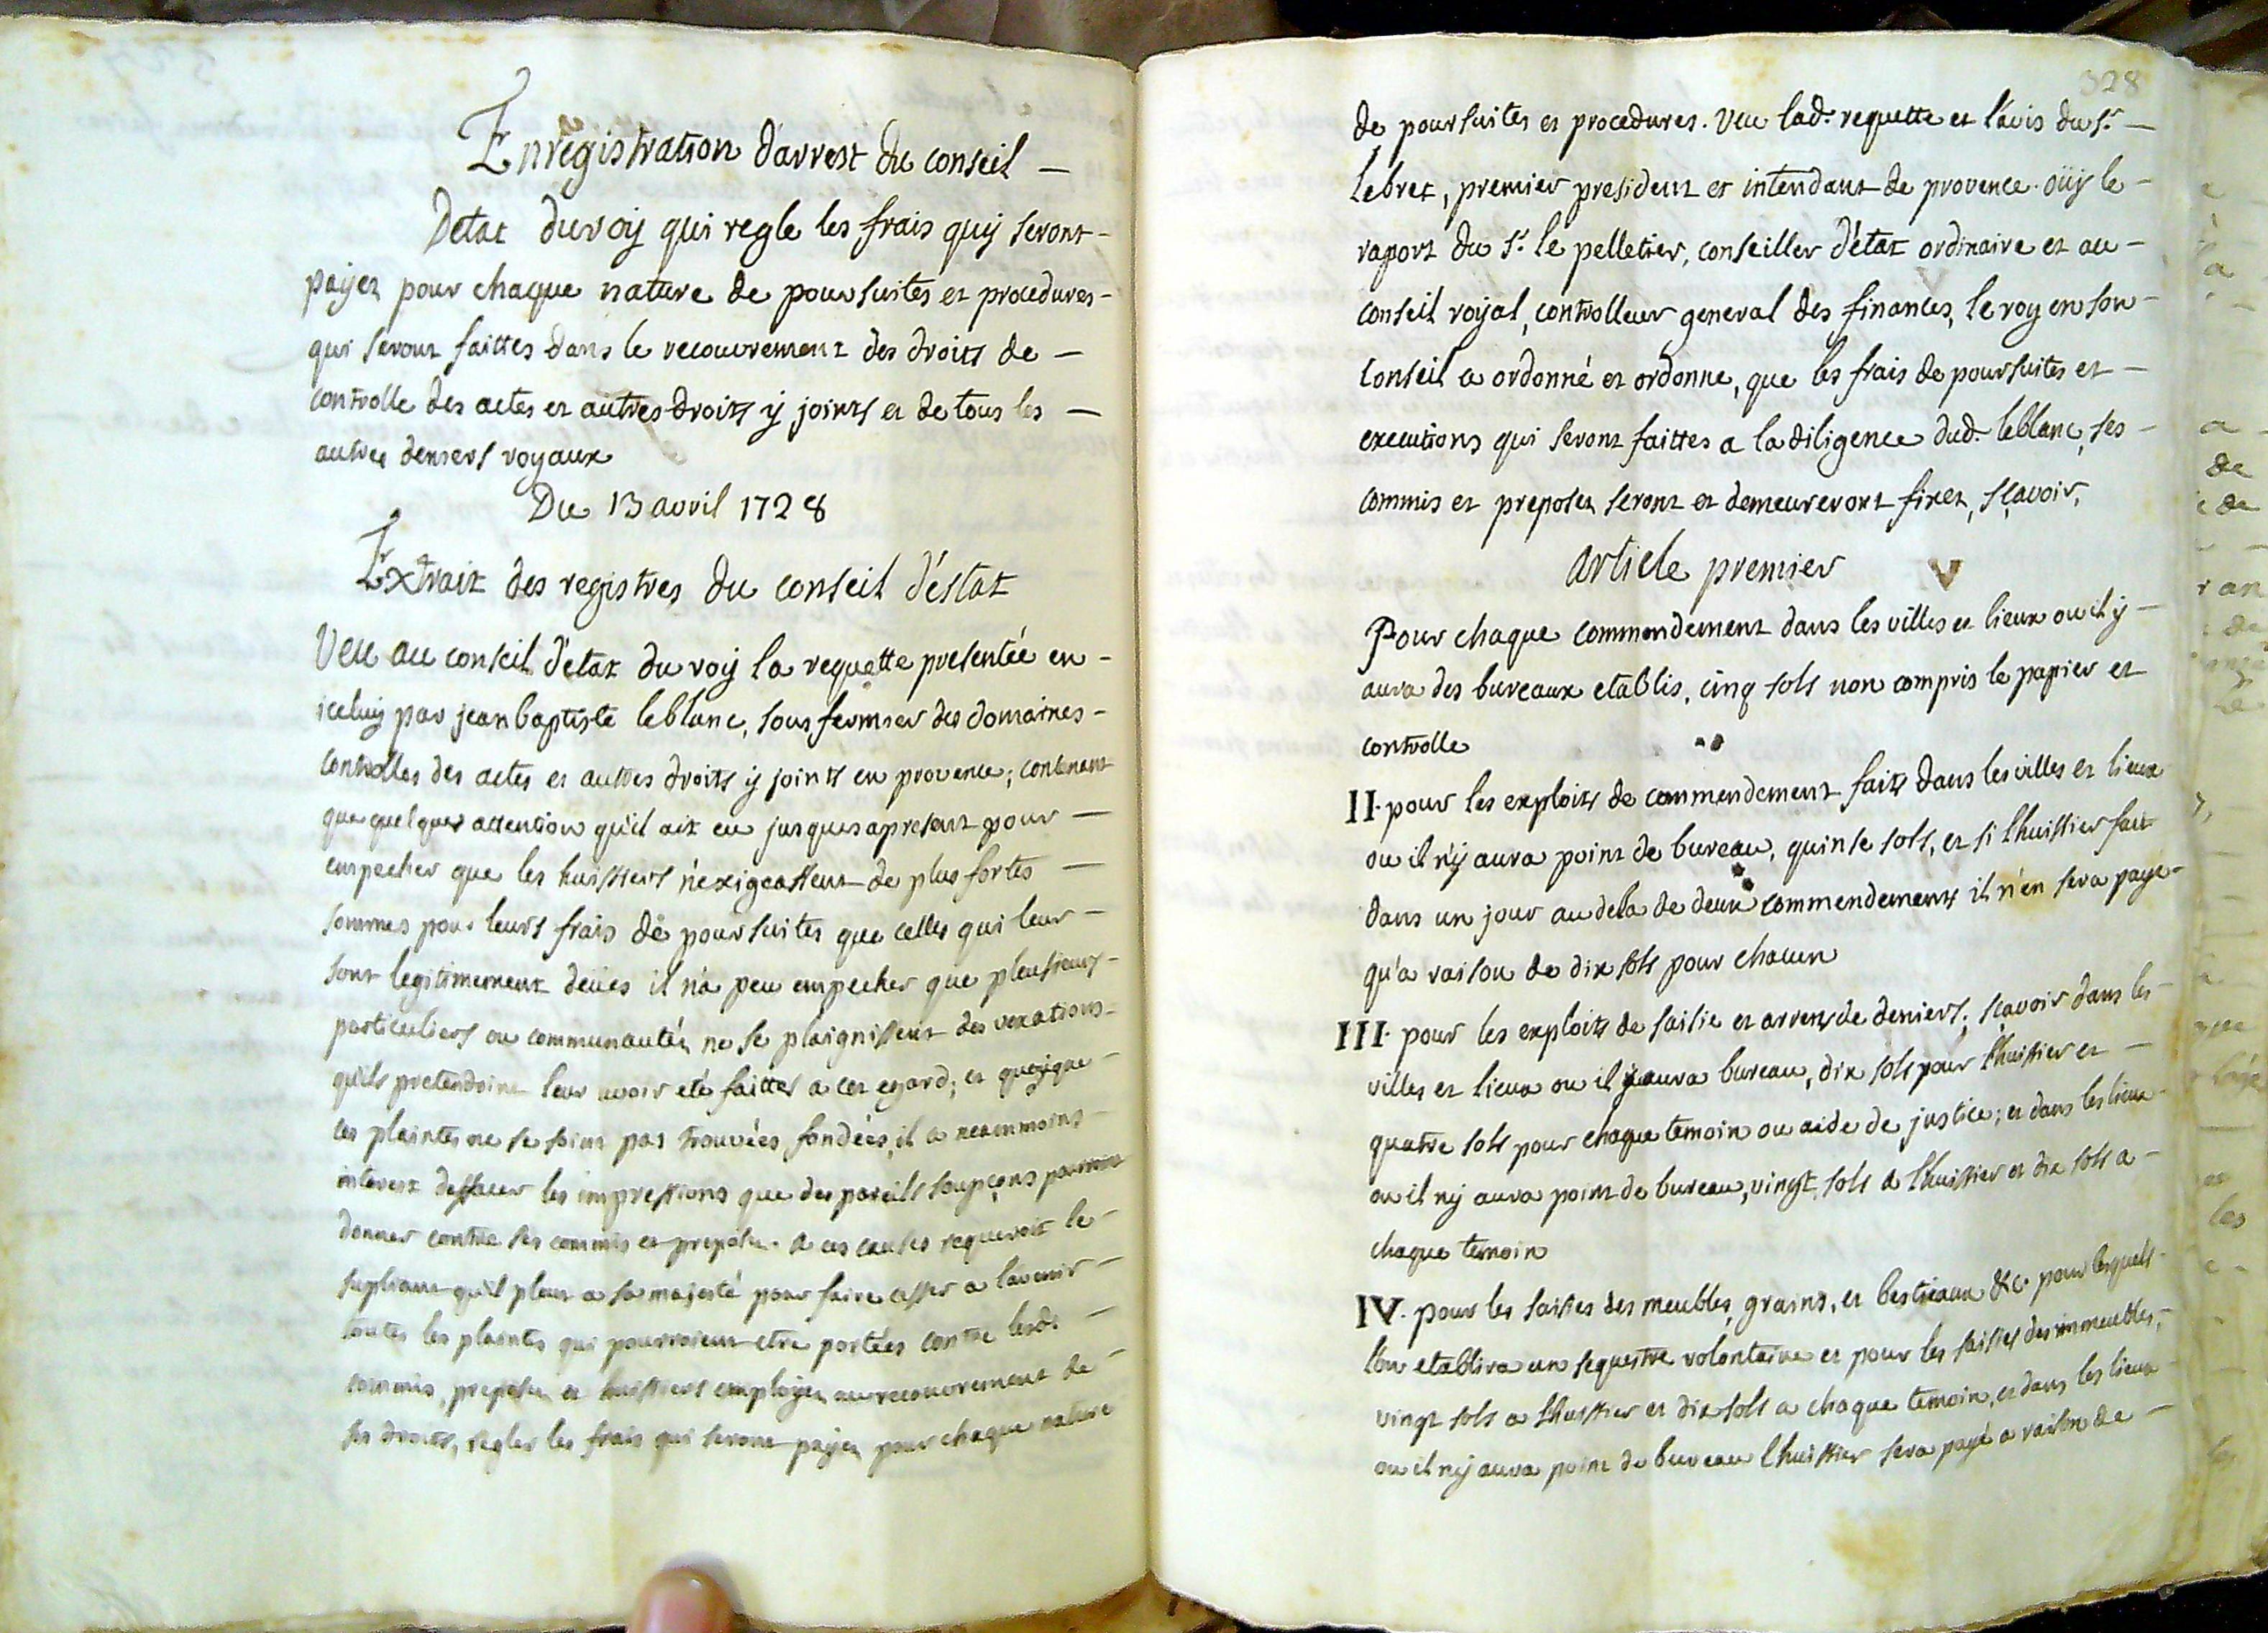 Enregistration d'arrest du conseil —
Detat du roy qui regle les frais quy seront -
payez pour chaque nature de poursuites et procedures -
qui seront faittes dans le recouvrement des droits de —
controlle des actes et autres droits y joints et de tous les —
autres deniers royaux
Du 13 avril 1728
Extrait des registres du conseil d'éstat
Veu au conseil d'état du roy la requette presentée en -
iceluy par jean baptiste leblanc, sous fermier des domaines -
controlles des actes et autres droits y joints en provence; contenant
que quelque attention qu'il ait eu jusques apresent pour —
empecher que les huissiers n'exigeassent de plus fortes —
sommes pour leurs frais de poursuites que celles qui leur —
sont legitimement deües il n'a peu empecher que plusieurs -
particuliers ou communautés ne se plaignissent des vexations -
qu'ils pretendoint leur avoir eté faittes a cet egard; et quoyque -
ces plaintes ne se soint pas trouvées fondées, il a neammoins
interest d'effacer les impressions que des pareils soupçons pourroint
donner contre ses commis et preposez. a ces causes requeroit le -
supliant qu'il pleut a sa majesté pour faire cesser a l'avenir —
toutes les plaintes qui pourroient etre portées contre lesd. —
commis, preposez et huissiers employez au recouvrement de -
ses droits, regler les frais qui seront payez pour chaque nature
328
de poursuites et procedures. Veu lad. requette et l'avis du sr. —
lebret, premier president et intendant de provence. oüy le -
raport du sr. le pelletier, conseiller d'état ordinaire et au -
conseil royal, controlleur general des finances, le roy en son -
conseil a ordonné et ordonne, que les frais de poursuites et —
executions qui seront faittes a la diligence dud. leblanc, ses -
commis et preposez seront et demeureront fixez, sçavoir,
article premier
Pour chaque commendement dans les villes et lieux ou il y -
aura des bureaux etablis, cinq sols non compris le papier et
controlle
II. pour les exploits de commendement faits dans les villes et lieux
ou il n'y aura point de bureau, quinse sols, et si l'huissier fait
dans un jour au dela de deux commendements il n'en sera payé -
qu'a raison de dix sols pour chacun
III. pour les exploits de saisie et arrest de deniers; sçavoir dans les -
villes et lieux ou il y aura bureau, dix sols pour l'huissier et —
quatre sols pour chaque temoin ou aide de justice; et dans les lieux -
ou il n'y aura point de bureau, vingt sols a l'huissier et dix sols a -
chaque temoin
IV. pour les saisies des meubles, grains, et bestieaux &c. pour lesquels -
l'on etablira un sequestre volontaire et pour les saisies des immeubles,
vingt sols a l'huissier et dix sols a chaque temoin, et dans les lieux -
ou il n'y aura point de bureau l'huissier sera payé a raison de —